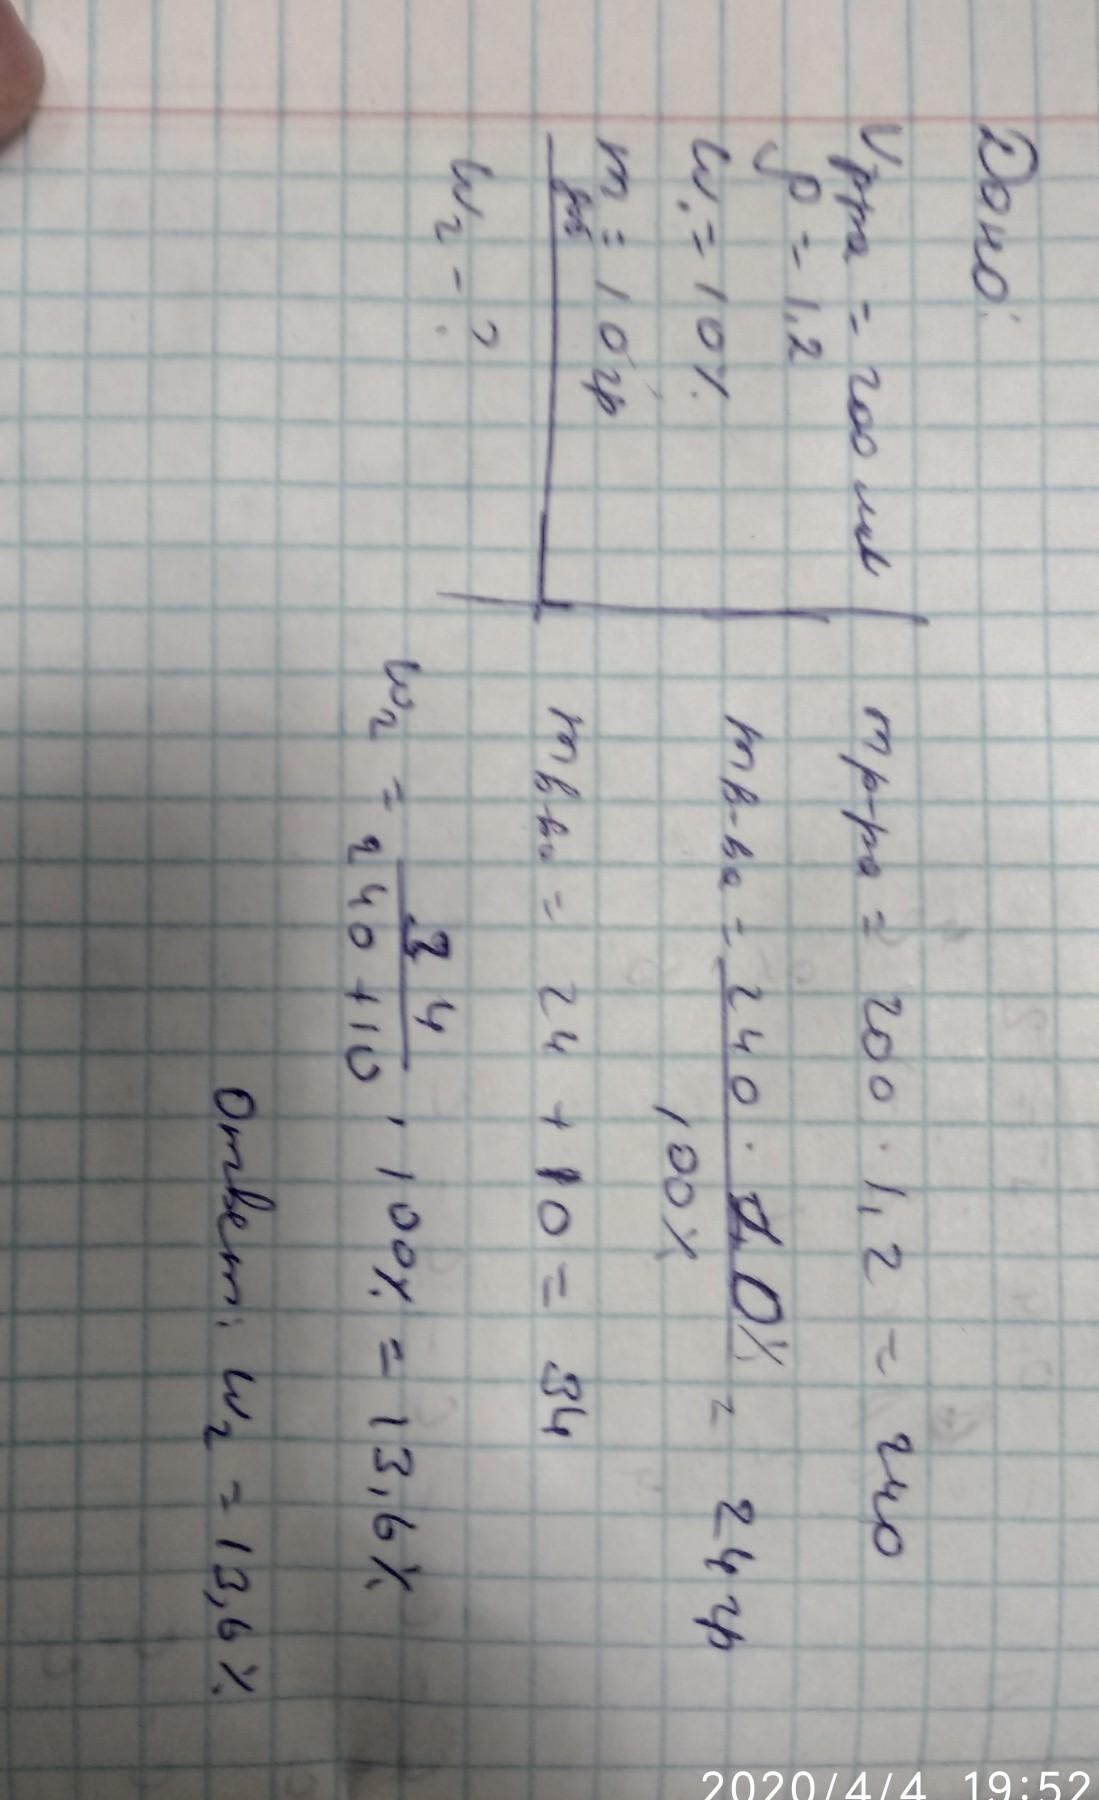 Дано:
Vр-ра = 200 мл
ρ = 1,2
W₁ = 10%
m = 10 гр
W₂ - ?
mр-ра = 200 · 1,2 = 240
mв-ва = 240 · 10% = 24 гр
100%
mв-ва = 24 + 10 = 34
34
W₂ = 240 + 10 · 100% = 13,6%
Ответ: W₂ = 13,6%
2020/4/4 19:52